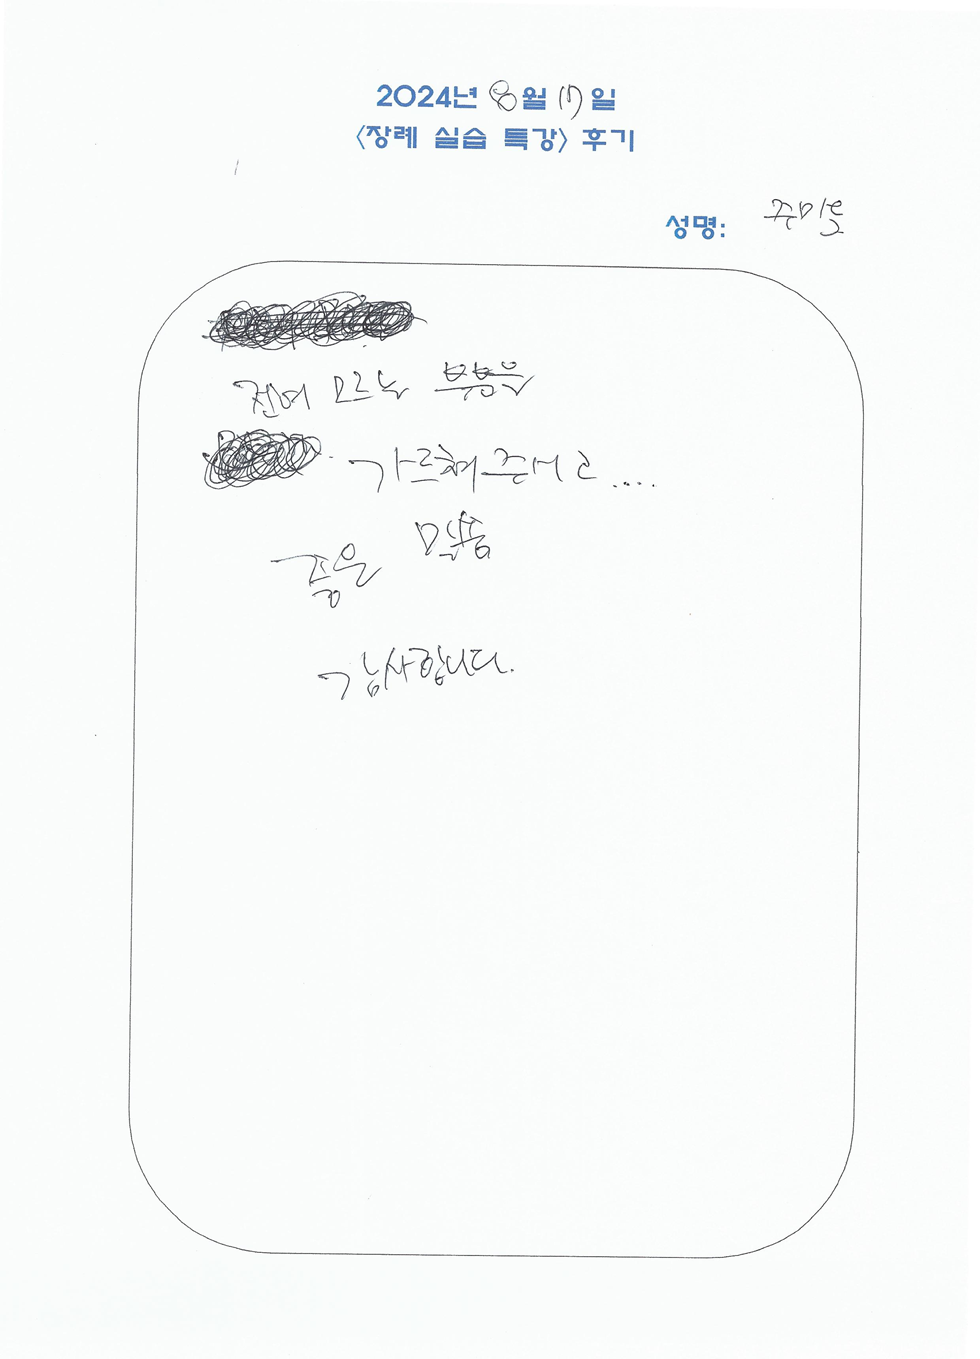 2024년 8월 17일
<장례 실습 특강> 후기
성명: 주미옥
전에 모르는 부분을
가르쳐주시고.....
좋은 말씀
감사합니다.